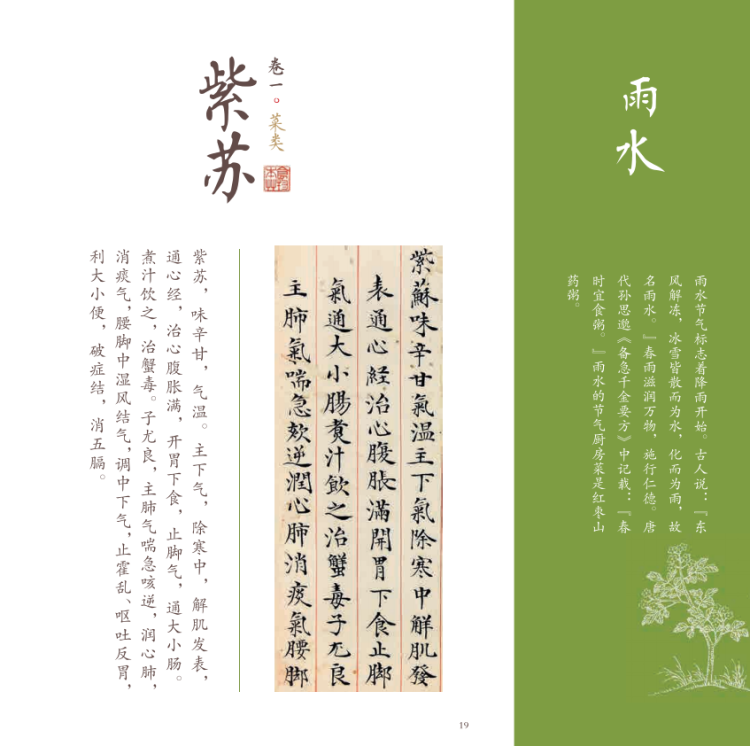 雨水
雨水节气标志着降雨开始。古人说：『东
风解冻，冰雪皆散而为水，化而为雨，故
名雨水。』春雨滋润万物，施行仁德。唐
代孙思邈《备急千金要方》中记载：『春
时宜食粥。』雨水的节气厨房菜是红枣山
药粥。
卷一。菜类
紫苏
紫蘇味辛甘氣温主下氣除寒中解肌發
表通心經治心腹脹滿開胃下食止脚
氣通大小腸煑汁飲之治蟹毒子尤良
主肺氣喘急欬逆潤心肺消痰氣腰脚
紫苏，味辛甘，气温。主下气，除寒中，解肌发表，
通心经，治心腹胀满，开胃下食，止脚气，通大小肠。
煮汁饮之，治蟹毒。子尤良，主肺气喘急咳逆，润心肺，
消痰气，腰脚中湿风结气，调中下气，止霍乱、呕吐反胃，
利大小便，破症结，消五膈。
19